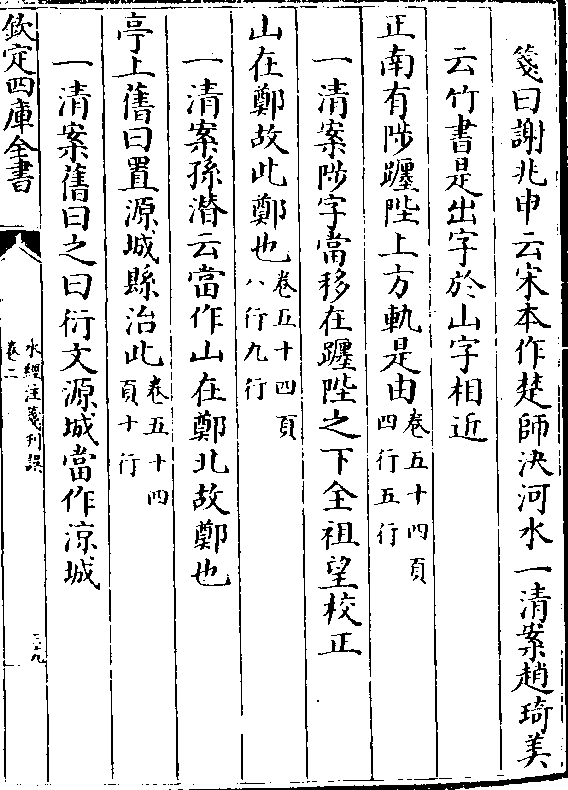 箋曰謝兆申云宋本作楚師決河水一清案趙琦美
云竹書是出字於山字相近
正南有陟躔陛上方軌是由卷五十四頁
四行五行
一清案陟字當移在躔陛之下全祖望校正
山在鄭故此鄭也卷五十四頁
八行九行
一清案孫潛云當作山在鄭北故鄭也
亭上舊曰置源城縣治此卷五十四
頁十行
一清案舊曰之曰衍文源城當作涼城
欽定四庫全書
水經注箋刊誤
卷二
三十九